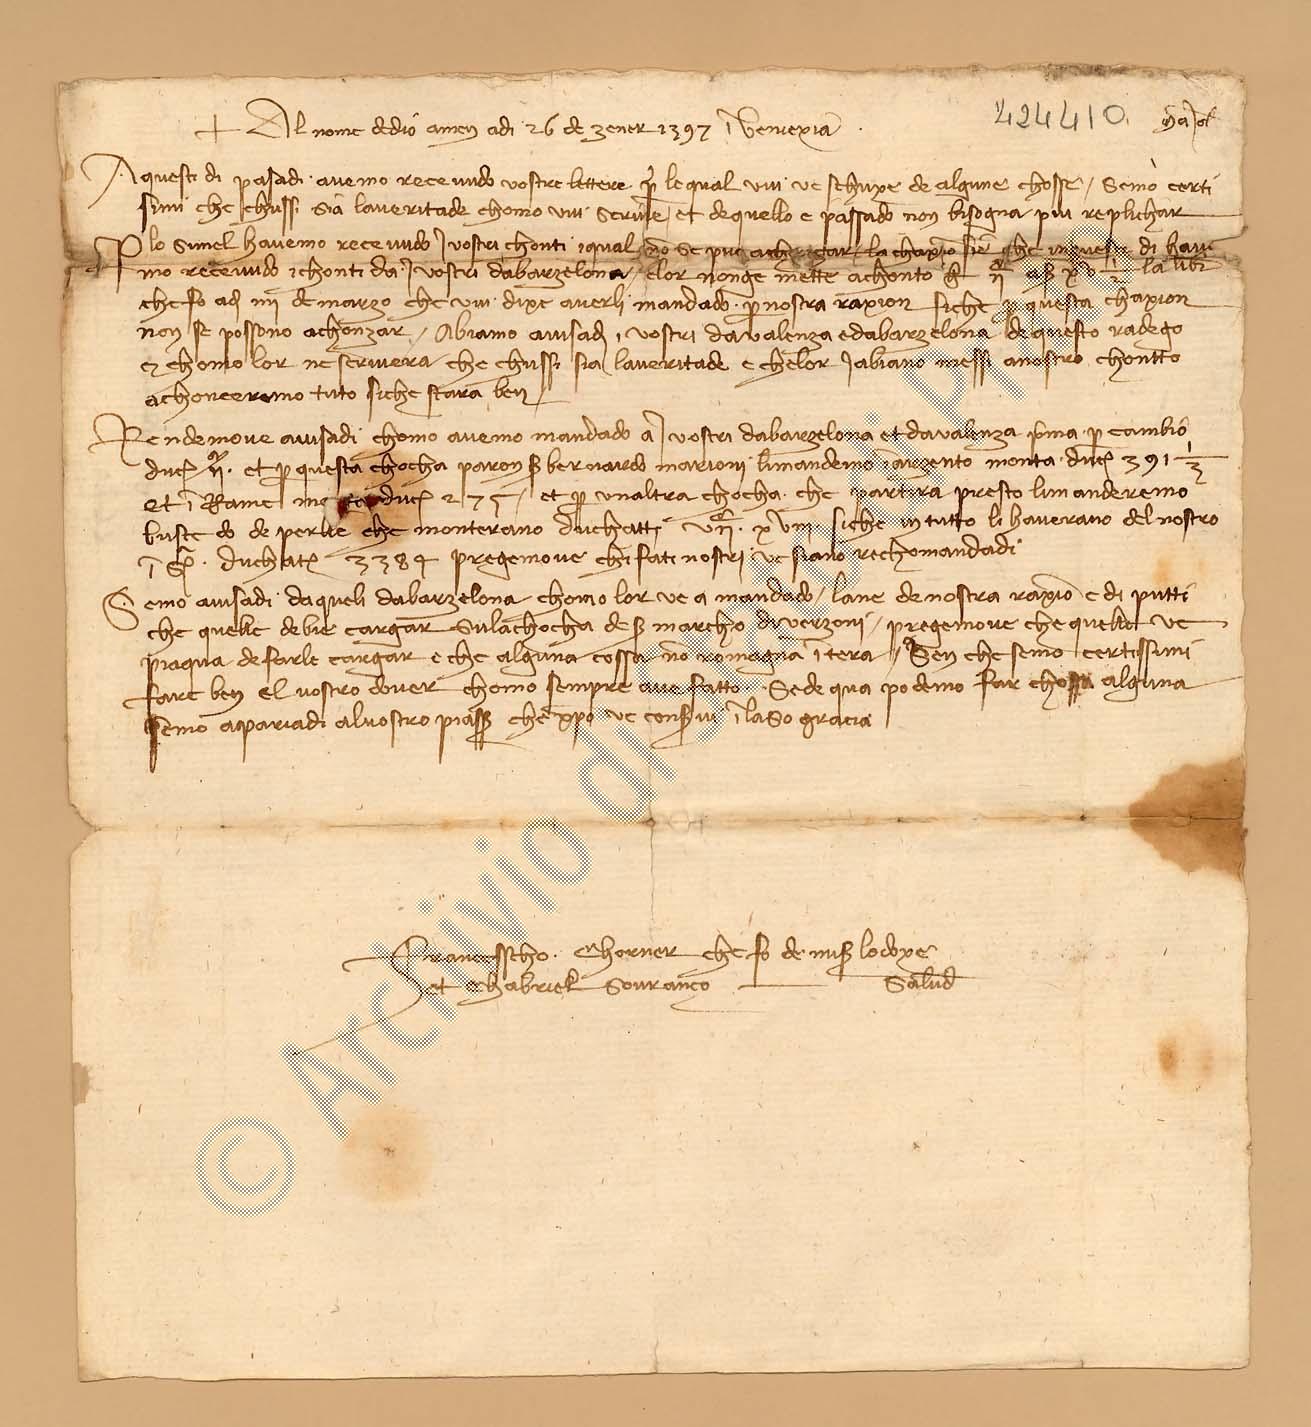 + Al nome dedio amen adi 26 de zener 1397 i Veniexia
424410
A questi di pasadi avemo recevudo vostre lettere p lequal vui ve schuxe de algune chosse / Semo certi
simi che chussi sia laveritade chomo vui scrive / et dequello e passado non bisogna piu replichar
P lo simel havemo recevudo i vostri chonti iqual no se puo la chaxio sie che questi di havi
mo recevudo i chonti da i vostri dabarzelona / elor nonge mette achonto la libr
che fo adi iiii de marzo che vui dixe averli mandado p nostra raxion siche p questa chaxion
non se possono achonzar / Abiamo avisadi i vostri davalenza edabarzelona de questo radego
e chomo lor ne scrivera che chussi sia laveritade e chelor i abiano messi anostro chontto
achonzeremo tuto siche stara ben
Rendemove avisadi chomo avemo mandado a i vostri dabarzelona et davalenza prima p cambio
duc et p questa chocha paron s bernardo marioni limandemo i arzento monta duc 391 1/3
et i Rame duc 275 / et p unaltra chocha che partira presto limanderemo
buste do de perlle che monterano duchatti xviii siche in tutto li haverano del nostro
i s duchat 3384 pregemove chi fati nostri ve siano rechomandadi
Semo avisadi daqueli dabarzelona chomo lor ve a mandado / lane de nostra raxio e di putti
che quelle debie cargar sulachocha de s marcho diverzoni / pregemove che quelle ve
piaqua de farle cargar e che alguna cossa no romagna i tera / Ben che semo certissimi
fare ben el vostro dover chomo sempre ave fatto. Se de qua podemo far chossa alguna
semo apariadi alvostro piaser che xpo ve conservi i laso gracia
Francesscho Chorner che fo de mis lodoxe
et Ghabriel Sovranço Salud
© Archivio di Stato di Prato